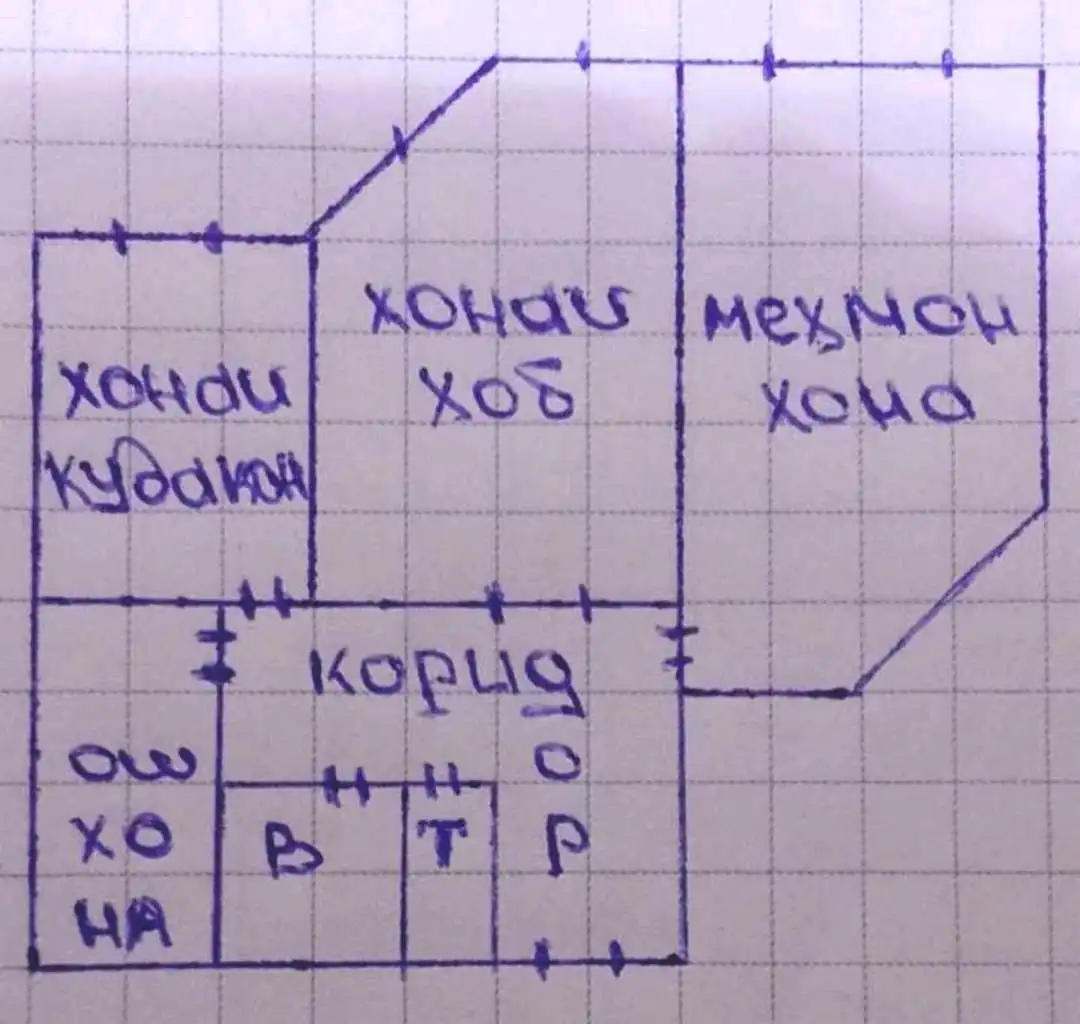 хонаи
хоб
меҳмон
хона
хонаи
кудакон
коридор
ош
хо
на
В
Т